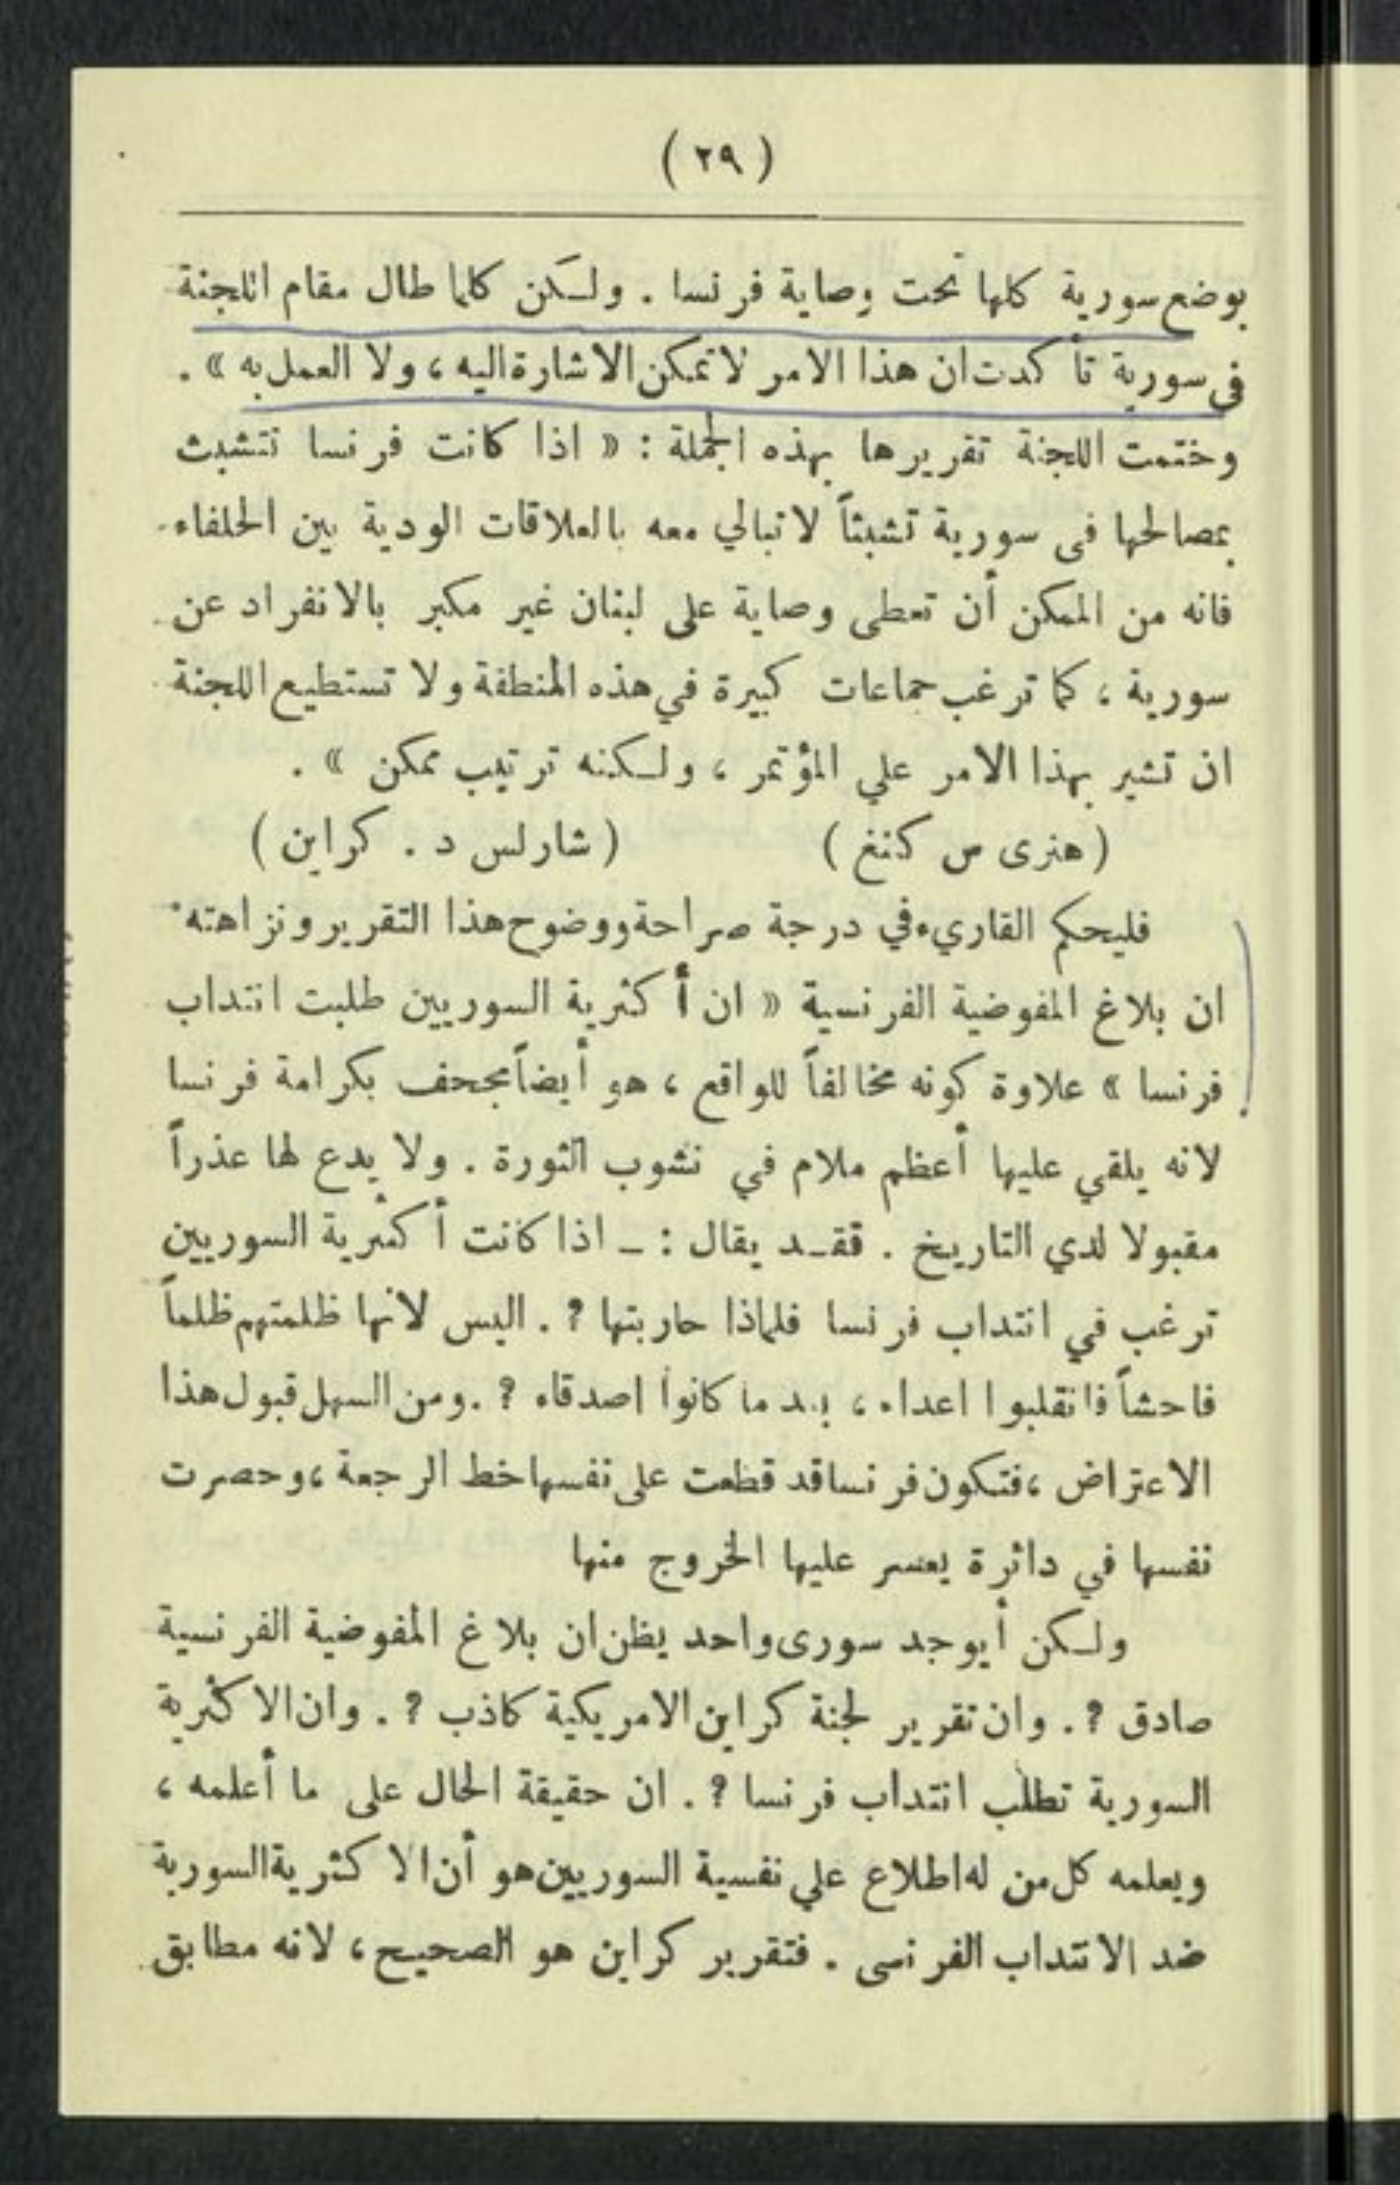 ( ٢٩ )
بوضع سورية كلها تحت وصاية فرنسا . ولكن كلما طال مقام اللجنة
في سورية تأكدت ان هذا الامر لا تمكن الاشارة اليه ، ولا العمل به » .
وختمت اللجنة تقريرها بهذه الجملة : « اذا كانت فرنسا تتشبث
بمصالحها فى سورية تشبثاً لا تبالي معه بالعلاقات الودية بين الحلفاء
فانه من الممكن أن تعطى وصاية على لبنان غير مكبر بالانفراد عن
سورية ، كما ترغب جماعات كبيرة في هذه المنطقة ولا تستطيع اللجنة
ان تشير بهذا الامر علي المؤتمر ، ولكنه ترتيب ممكن » .
( هنرى س كننغ ) ( شارلس د . كراين )
فليحكم القاريء في درجة صراحة ووضوح هذا التقرير ونزاهته
ان بلاغ المفوضية الفرنسية « ان أكثرية السوريين طلبت انتداب
فرنسا » علاوة كونه مخالفاً للواقع ، هو أيضاً مجحف بكرامة فرنسا
لانه يلقي عليها أعظم ملام في نشوب الثورة . ولا يدع لها عذراً
مقبولا لدي التاريخ . فقد يقال : ـ اذا كانت أكثرية السوريين
ترغب في انتداب فرنسا فلماذا حاربتها ? . اليس لانها ظلمتهم ظلماً
فاحشاً فانقلبوا اعداء ، بعد ما كانوا اصدقاء ? . ومن السهل قبول هذا
الاعتراض ، فتكون فرنسا قد قطعت على نفسها خط الرجعة ، وحصرت
نفسها في دائرة يعسر عليها الخروج منها
ولكن أيوجد سورى واحد يظن ان بلاغ المفوضية الفرنسية
صادق ? . وان تقرير لجنة كراين الامريكية كاذب ? . وان الاكثرية
السورية تطلب انتداب فرنسا ? . ان حقيقة الحال على ما أعلمه ،
ويعلمه كل من له اطلاع علي نفسية السوريين هو أن الاكثرية السورية
ضد الانتداب الفرنسى . فتقرير كراين هو الصحيح ، لانه مطابق